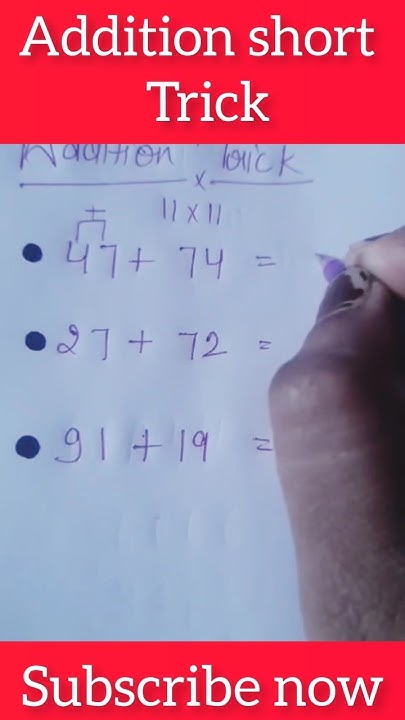 Addition short
Trick
Addition trick
x
+ 11 x 11
47 + 74 =
27 + 72 =
91 + 19 =
Subscribe now